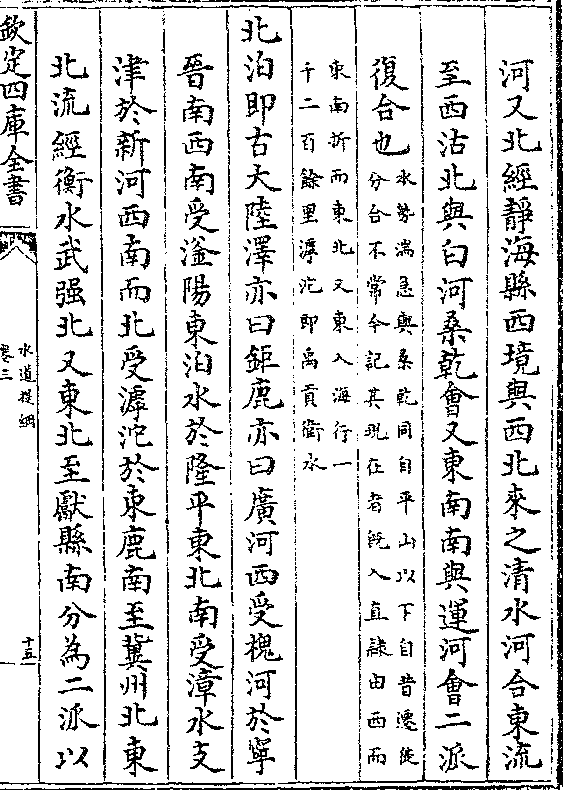 河又北經靜海縣西境與西北來之清水河合東流
至西沽北與白河桑乾會又東南南與運河會二派
復合也水勢湍急與桑乾同自平山以下自昔遷徙
分合不常今記其現在者旣入直隷由西而
東南折而東北又東入海行一
千二百餘里滹沱即禹貢衛水
北泊即古大陸澤亦曰鉅鹿亦曰廣河西受槐河於寧
晉南西南受滏陽東泊水於隆平東北南受漳水支
津於新河西南而北受滹沱於束鹿南至冀州北東
北流經衡水武强北又東北至獻縣南分為二派以
欽定四庫全書
水道提綱
卷三
十五